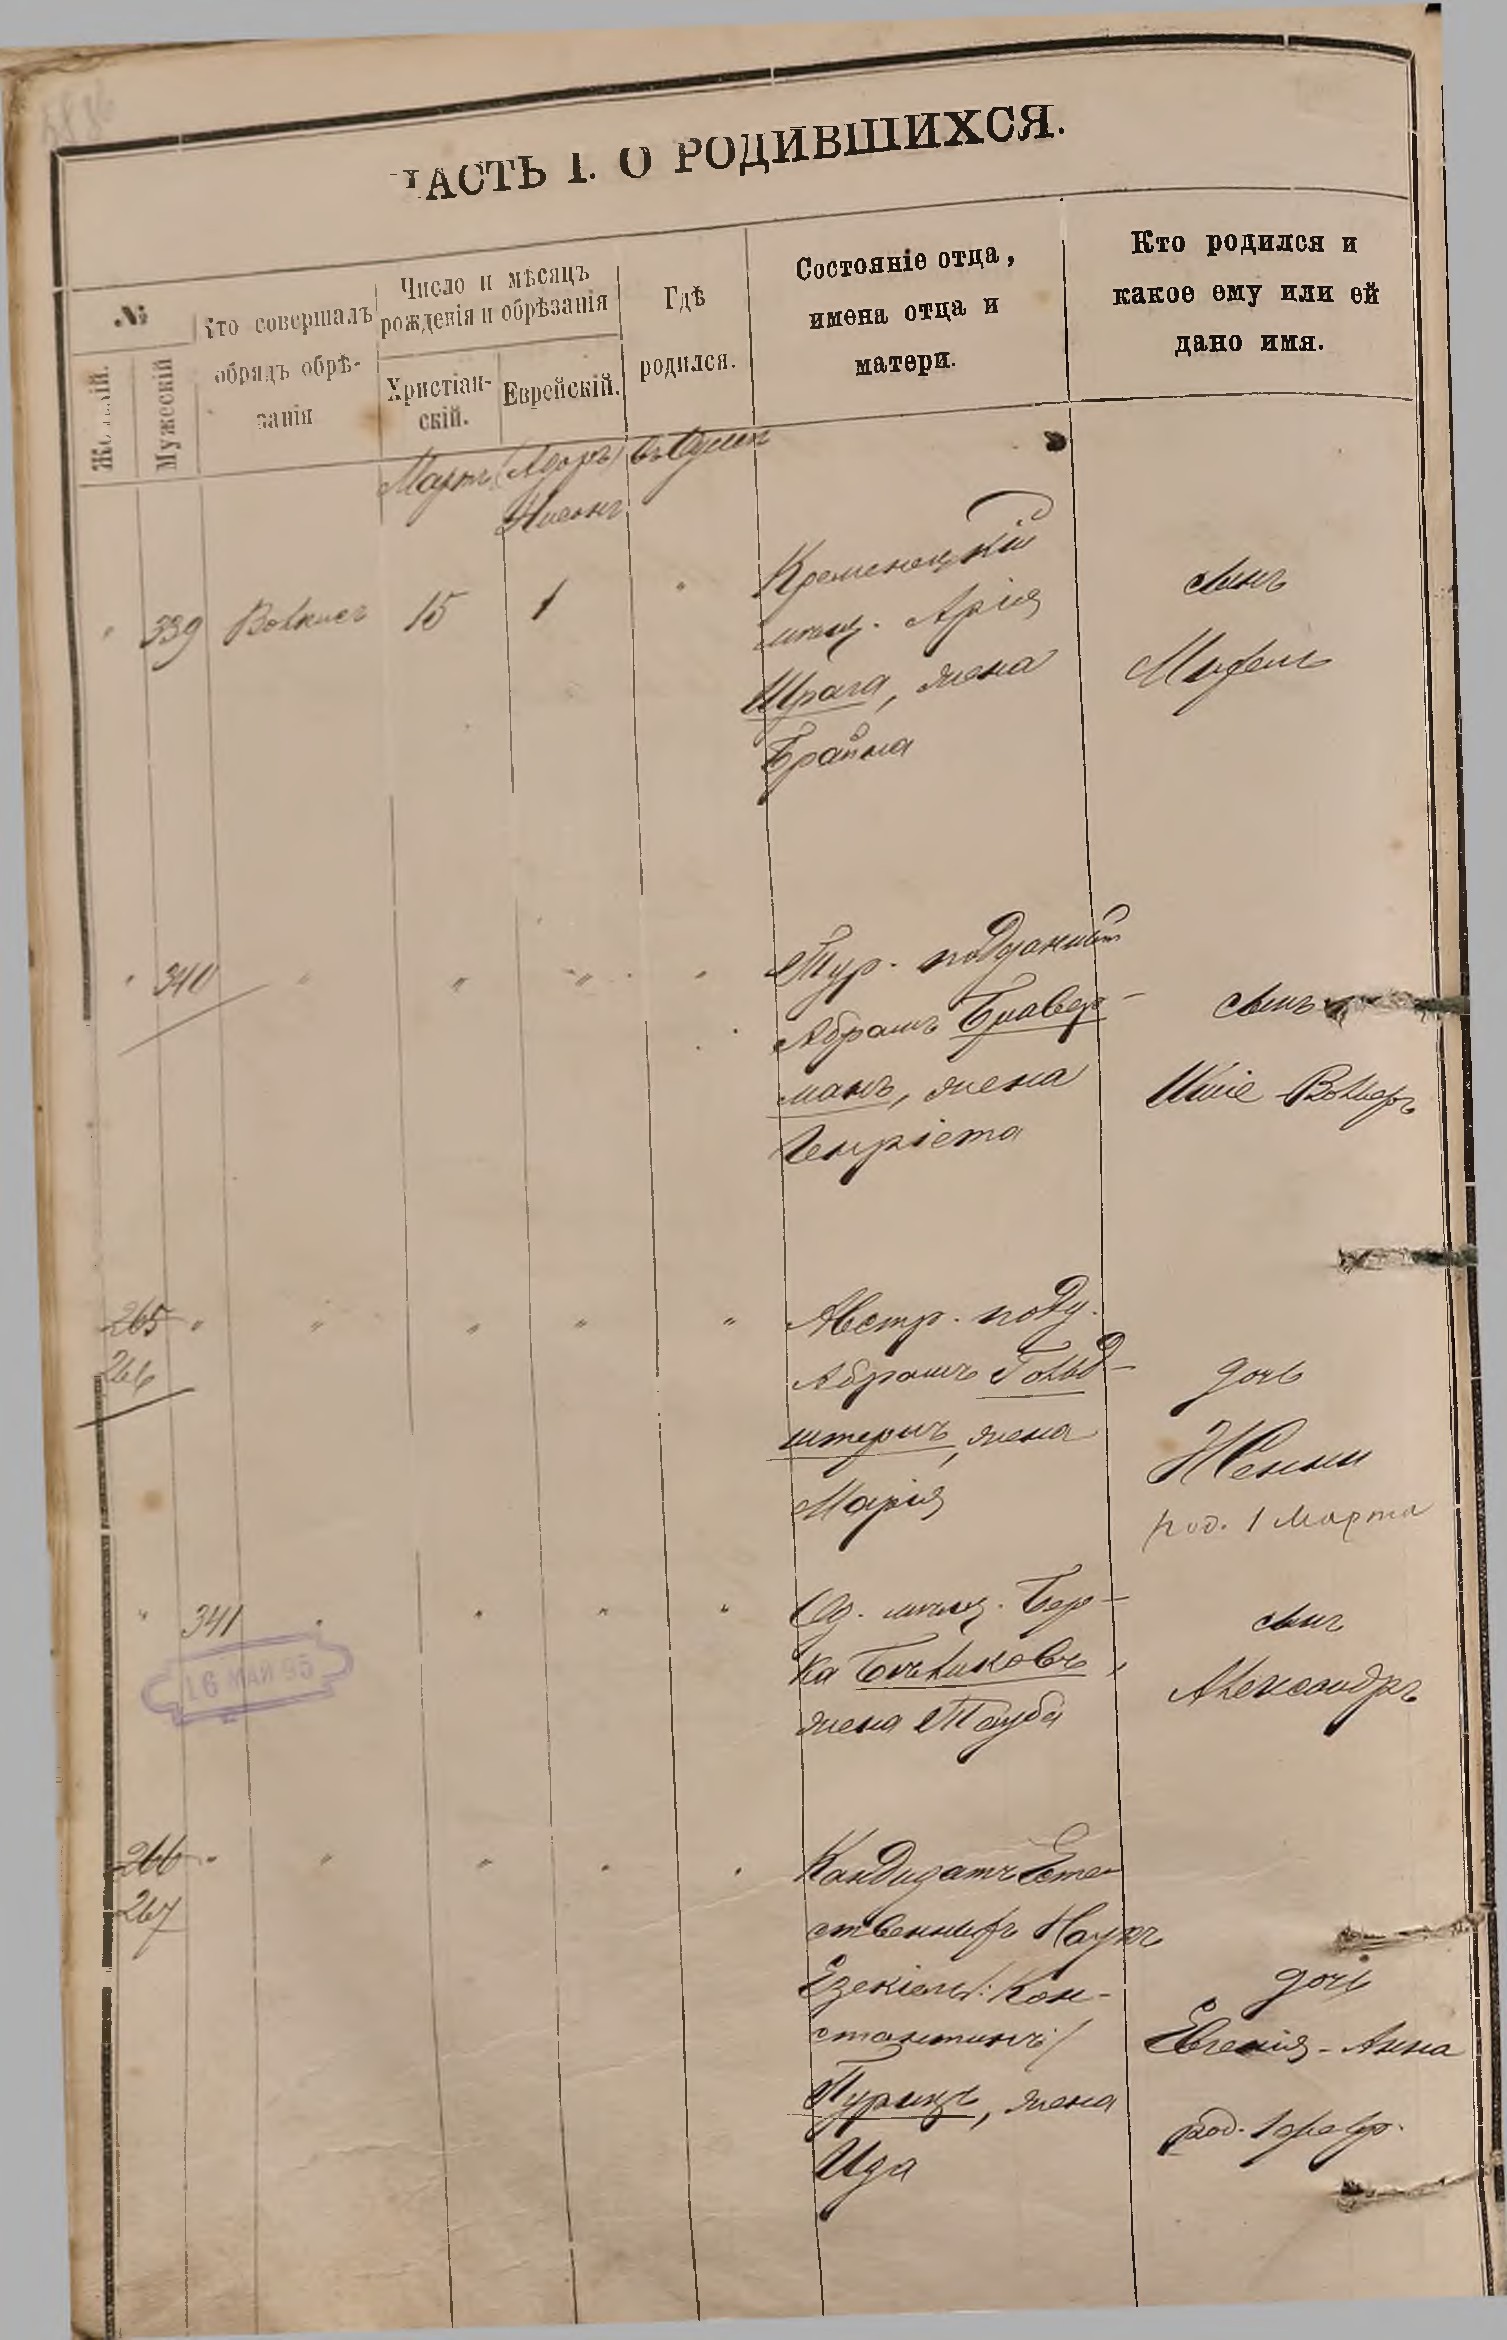 ЧАСТЬ I. О РОДИВШИХСЯ.
№
Женскій.
Мужескій
Кто совершалъ
обрядъ обрѣ-
занія
Число и мѣсяцъ
рожденія и обрѣзанія
Христіан-
скій.
Еврейскій.
Гдѣ
родился.
Состояніе отца,
имена отца и
матери.
Кто родился и
какое ему или ей
дано имя.
Мартъ (Адаръ) въ Одессѣ
Нисонъ
" 339 15 1 "
Кременецкій
мѣщ. Арія
Шрага, жена
Брайна
сынъ
340 " " " "
Тур. подданный
Абрамъ Бравер-
манъ, жена
Генріета
сынъ
265 " " " " "
266
Австр. подд.
Абрамъ Гольд-
штернъ, жена
Марія
дочь
Женни
род. 1 Марта
" 341 " " " "
16 МАЙ 95
Од. мѣщ. Бер-
ка
жена Тауба
сынъ
Александръ
266 " " " " "
267
Кандидатъ Есте-
ственныхъ Наукъ
Езекіель /: Кон-
стантинъ :/
Пурицъ, жена
Ида
дочь
Евгенія - Анна
род. 1 февр.